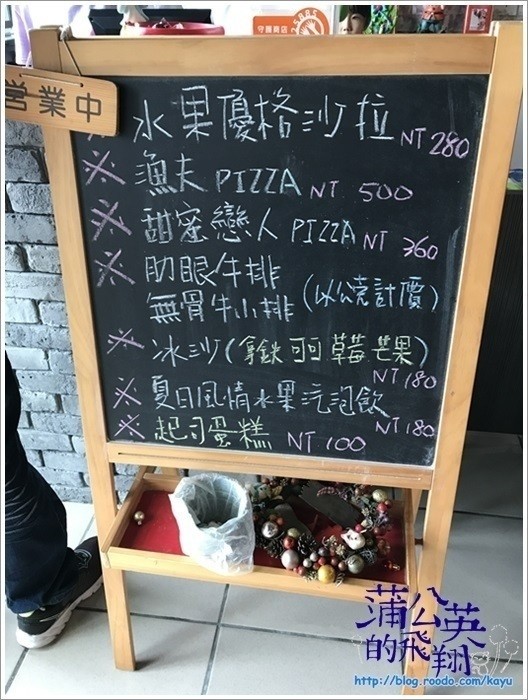 守護商店
営業中
※ 水果優格沙拉 NT 280
※ 漁夫 PIZZA NT 500
※ 甜蜜戀人 PIZZA NT 360
※ 肋眼牛排
無骨牛小排 (以公克計價)
※ 冰沙(拿鐵 可可 草莓 芒果)
NT 180
※ 夏日風情水果汽泡飲
NT 180
※ 起司蛋糕 NT 100
蒲公英
的飛翔
http://blog.roodo.com/kayu